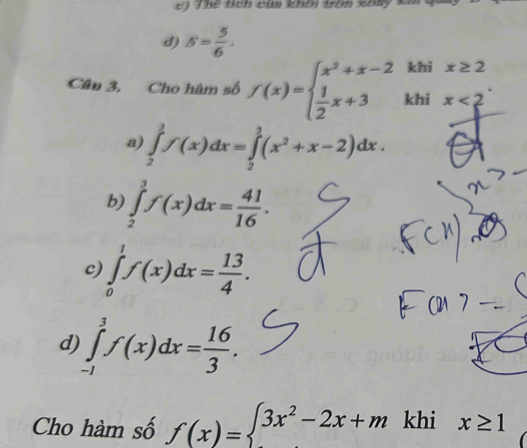 c) Thể tích của khối tròn xoay khi quay
d) S = 5/6.
Câu 3. Cho hàm số f(x) = { x² + x − 2 khi x ≥ 2
1/2 x + 3 khi x < 2.
a) ∫₂³ f(x) dx = ∫₂³ (x² + x − 2) dx. đ
b) ∫₂³ f(x) dx = 41/16. S
c) ∫₀¹ f(x) dx = 13/4. đ
d) ∫₋₁³ f(x) dx = 16/3. S
Cho hàm số f(x) = { 3x² − 2x + m khi x ≥ 1